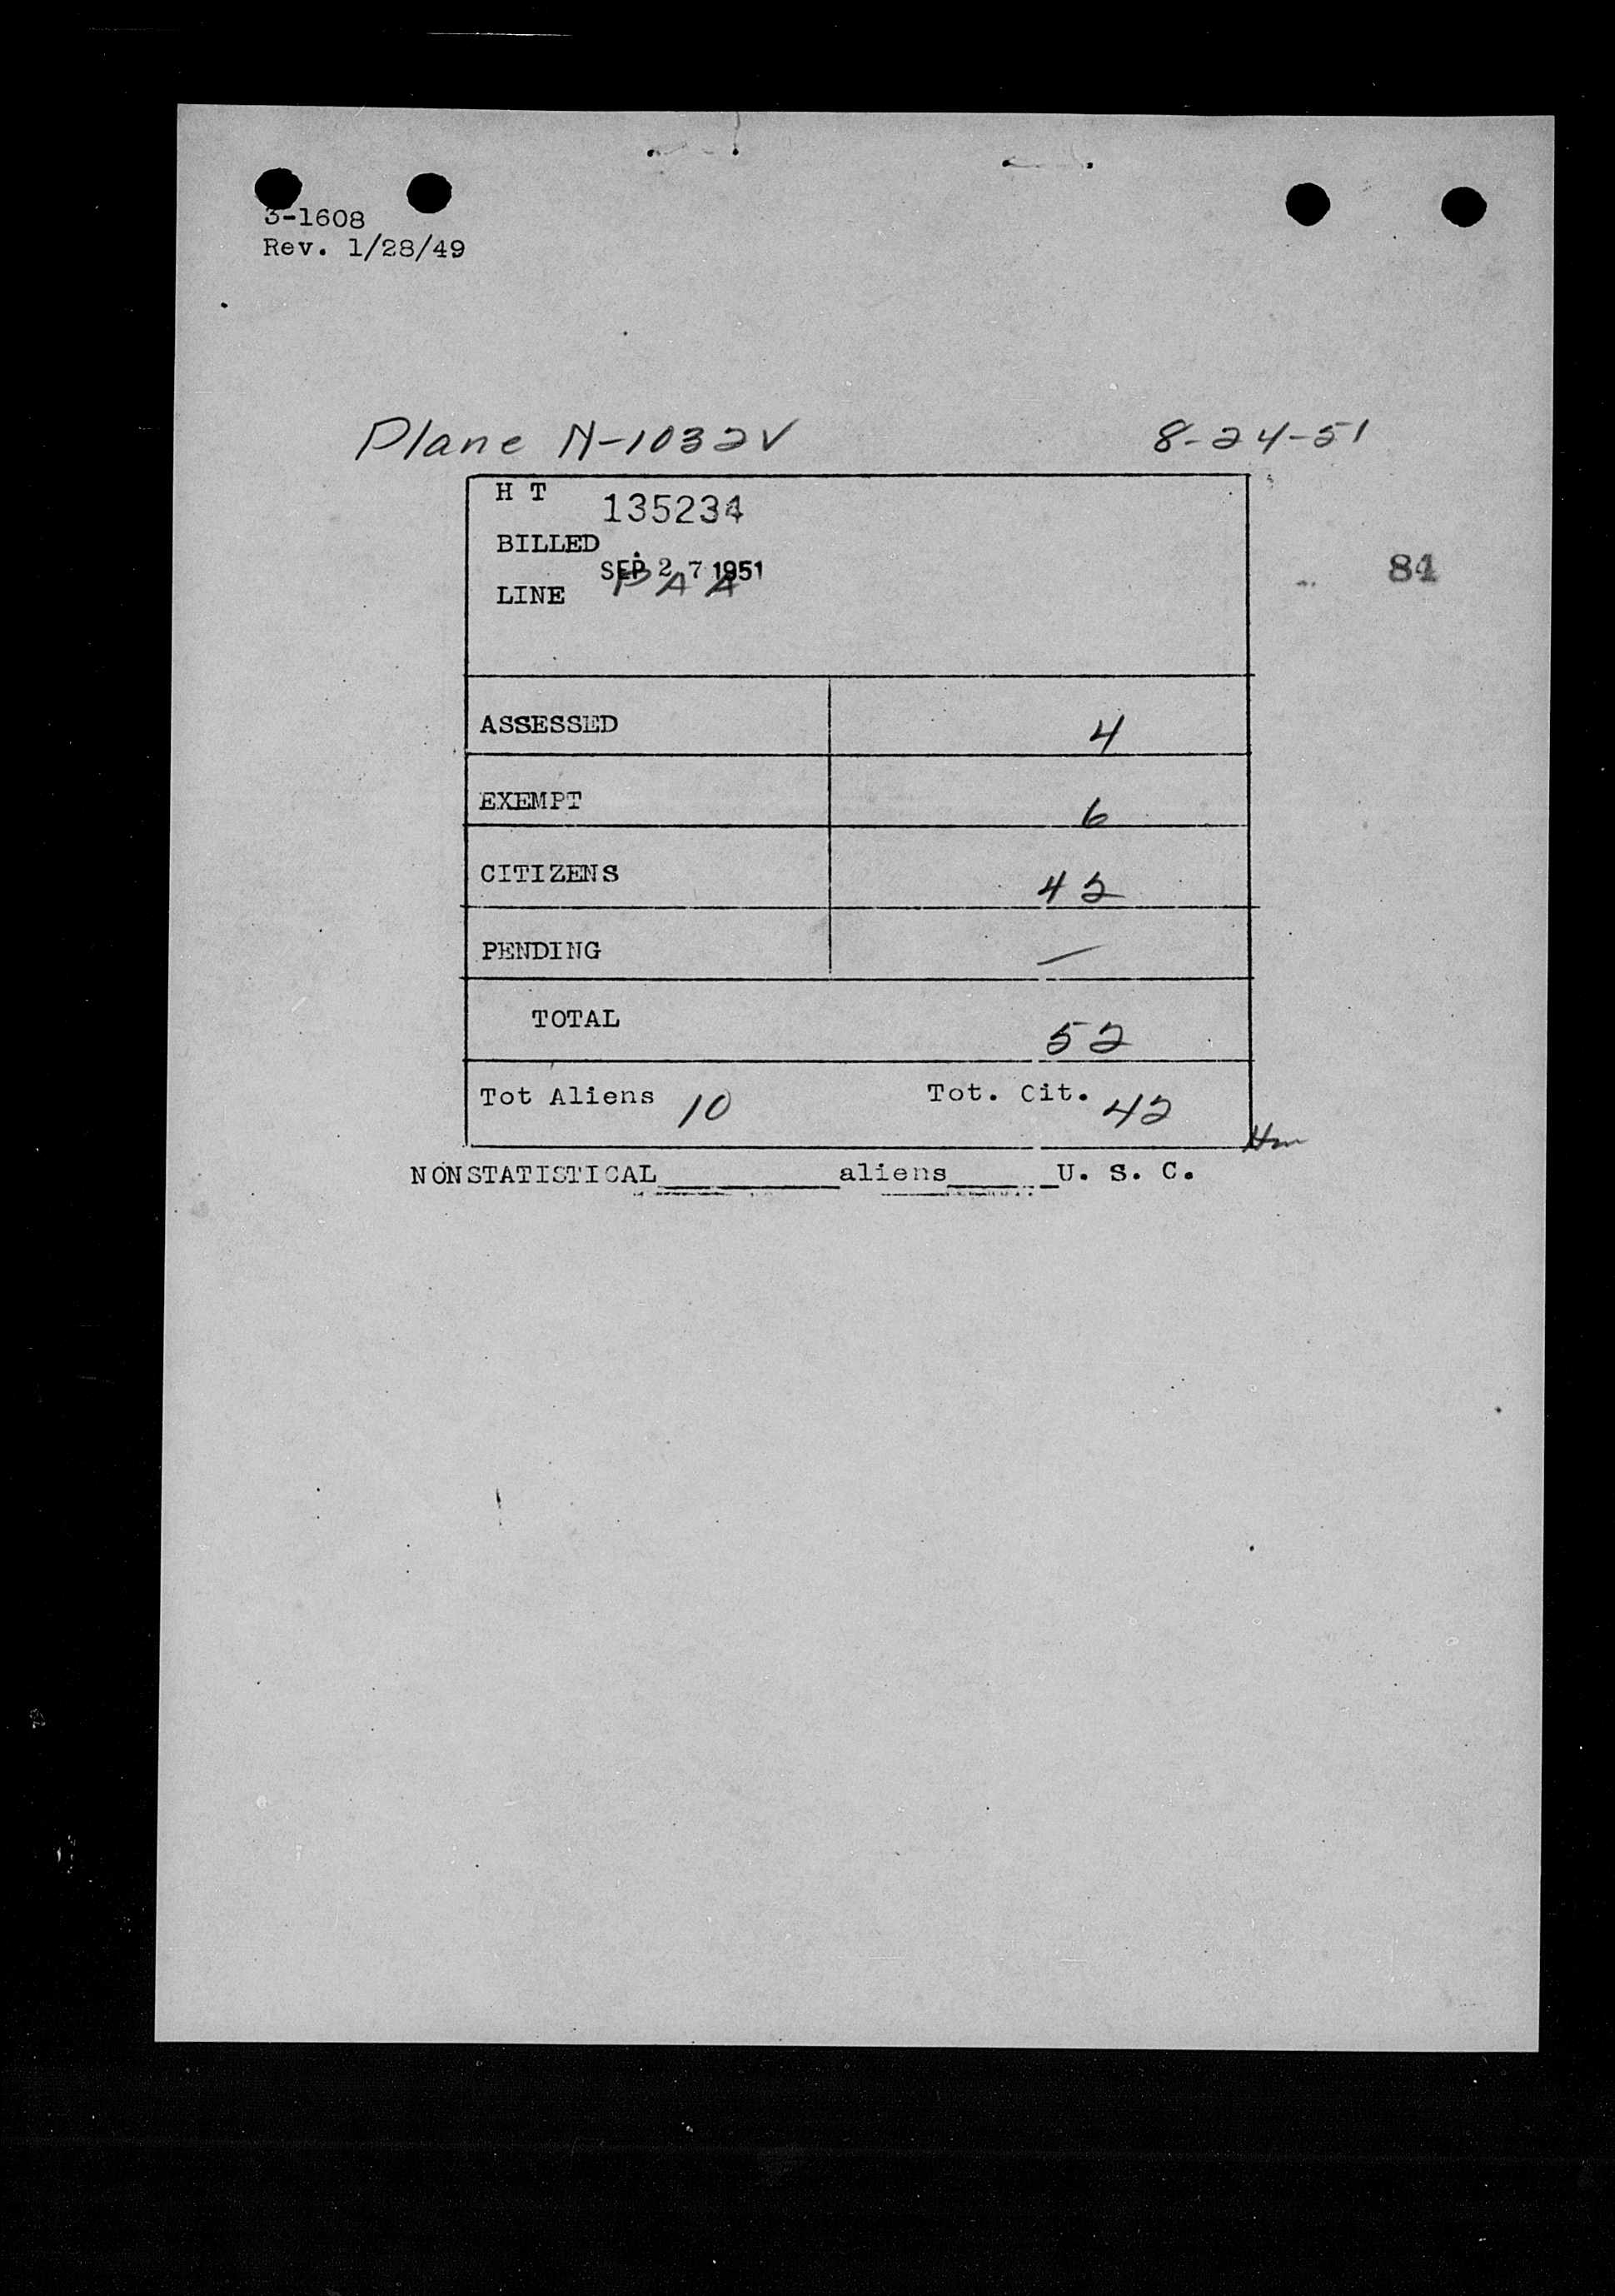 3-1608
Rev. 1/28/49
Plane N-1032V 8-24-51
H T 135234
BILLED SEP 27 1951
84
LINE PAA
ASSESSED 4
EXEMPT 6
CITIZENS 42
PENDING —
TOTAL 52
Tot Aliens 10 Tot. Cit. 42
NONSTATISTICAL__________aliens______U. S. C.